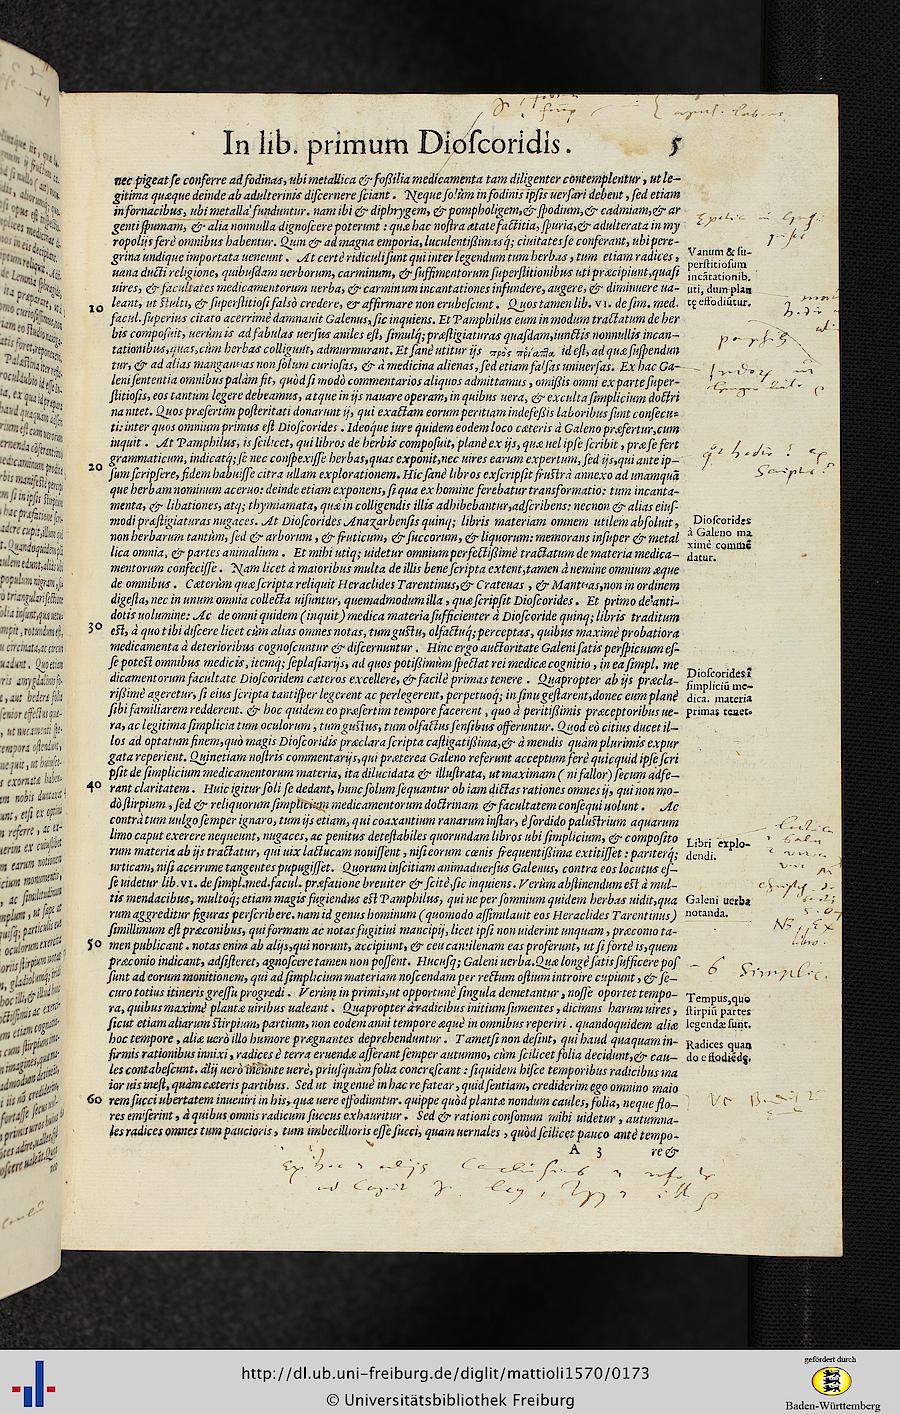 In lib. primum Dioſcoridis. 5
nec pigeat ſe conferre ad fodinas, ubi metallica & foßilia medicamenta tam diligenter contemplentur, ut le-
gitima quæque deinde ab adulterinis diſcernere ſciant. Neque ſolùm in fodinis ipſis uerſari debent, ſed etiam
in fornacibus, ubi metalla funduntur. nam ibi & diphrygem, & pompholigem, & ſpodium, & cadmiam, & ar
genti ſpumam, & alia nonnulla dignoſcere poterunt: quæ hac noſtra ætate factitia, ſpuria, & adulterata in my
ropolijs ferè omnibus habentur. Quin & ad magna emporia, luculentißimasq; ciuitates ſe conferant, ubi pere-
grina undique importata ueneunt. At certè ridiculi ſunt qui inter legendum tum herbas, tum etiam radices,
uana ducti religione, quibuſdam uerborum, carminum, & ſuffimentorum ſuperſtitionibus uti præcipiunt, quaſi
uires, & facultates medicamentorum uerba, & carminum incantationes infundere, augere, & diminuere ua-
10 leant, ut ſtulti, & ſuperſtitioſi falsò credere, & affirmare non erubeſcunt. Quos tamen lib. VI. de ſim. med.
facul. ſuperius citato acerrimè damnauit Galenus, ſic inquiens. Et Pamphilus eum in modum tractatum de her
bis compoſuit, uerùm is ad fabulas uerſus aniles est, ſimulq; præſtigiaturas quaſdam, iunctis nonnullis incan-
tationibus, quas, cùm herbas colligunt, admurmurant. Et ſanè utitur ijs πρὸς id est, ad quæ ſuſpendun
tur, & ad alias manganeias non ſolùm curioſas, & à medicina alienas, ſed etiam falſas uniuerſas. Ex hac Ga-
leni ſententia omnibus palàm fit, quòd ſi modò commentarios aliquos admittamus, omißis omni ex parte ſuper-
ſtitioſis, eos tantùm legere debeamus, atque in ijs nauare operam, in quibus uera, & exculta ſimplicium doctri
na nitet. Quos præſertim poſteritati donarunt ij, qui exactam eorum peritiam indefeßis laboribus ſunt conſecu-
ti: inter quos omnium primus est Dioſcorides. Ideoque iure quidem eodem loco cæteris à Galeno præfertur, cum
inquit. At Pamphilus, is ſcilicet, qui libros de herbis compoſuit, planè ex ijs, quæ uel ipſe ſcribit, præ ſe fert
20 grammaticum, indicatq; ſe nec conſpexiſſe herbas, quas exponit, nec uires earum expertum, ſed ijs, qui ante ip-
ſum ſcripſere, fidem habuiſſe citra ullam explorationem. Hic ſanè libros exſcripſit fruſtrà annexo ad unamquã
que herbam nominum aceruo: deinde etiam exponens, ſi qua ex homine ferebatur transformatio: tum incanta-
menta, & libationes, atq; thymiamata, quæ in colligendis illis adhibebantur, adſcribens: necnon & alias eiuſ-
modi præſtigiaturas nugaces. At Dioſcorides Anazarbenſis quinq; libris materiam omnem utilem abſoluit,
non herbarum tantùm, ſed & arborum, & fruticum, & ſuccorum, & liquorum: memorans inſuper & metal
lica omnia, & partes animalium. Et mihi utiq; uidetur omnium perfectißimè tractatum de materia medica-
mentorum confeciſſe. Nam licet à maioribus multa de illis bene ſcripta extent, tamen à nemine omnium æque
de omnibus. Cæterùm quæ ſcripta reliquit Heraclides Tarentinus, & Crateuas, & Mantias, non in ordinem
digeſta, nec in unum omnia collecta uiſuntur, quemadmodum illa, quæ ſcripſit Dioſcorides. Et primo de anti-
dotis uolumine: Ac de omni quidem (inquit) medica materia ſufficienter à Dioſcoride quinq; libris traditum
30 est, à quo tibi diſcere licet cùm alias omnes notas, tum gustu, olfactuq; perceptas, quibus maximè probatiora
medicamenta à deterioribus cognoſcuntur & diſcernuntur. Hinc ergo auctoritate Galeni ſatis perſpicuum eſ-
ſe potest omnibus medicis, itemq; ſeplaſiarijs, ad quos potißimùm ſpectat rei medicæ cognitio, in ea ſimpl. me
dicamentorum facultate Dioſcoridem cæteros excellere, & facilè primas tenere. Quapropter ab ijs præcla-
rißimè ageretur, ſi eius ſcripta tantiſper legerent ac perlegerent, perpetuoq; in ſinu geſtarent, donec eum planè
ſibi familiarem redderent. & hoc quidem eo præſertim tempore facerent, quo à peritißimis præceptoribus ue-
ra, ac legitima ſimplicia tum oculorum, tum gustus, tum olfactus ſenſibus offeruntur. Quod eò citius ducet il-
los ad optatum finem, quò magis Dioſcoridis præclara ſcripta caſtigatißima, & à mendis quàm plurimis expur
gata reperient. Quinetiam noſtris commentarijs, qui præterea Galeno referunt acceptum ferè quicquid ipſe ſcri
pſit de ſimplicium medicamentorum materia, ita dilucidata & illuſtrata, ut maximam (ni fallor) ſecum adfe-
40 rant claritatem. Huic igitur ſoli ſe dedant, hunc ſolum ſequantur ob iam dictas rationes omnes ij, qui non mo-
dò ſtirpium, ſed & reliquorum ſimplicium medicamentorum doctrinam & facultatem conſequi uolunt. Ac
contrà tum uulgo ſemper ignaro, tum ijs etiam, qui coaxantium ranarum inſtar, è ſordido paluſtrium aquarum
limo caput exerere nequeunt, nugaces, ac penitus deteſtabiles quorundam libros ubi ſimplicium, & compoſito
rum materia ab ijs tractatur, qui uix lactucam nouiſſent, niſi eorum cœnis frequentißima extitiſſet: pariterq;
urticam, niſi acerrume tangentes pupugiſſet. Quorum inſcitiam animaduerſus Galenus, contra eos locutus eſ-
ſe uidetur lib. VI. de ſimpl. med. facul. præfatione breuiter & ſcitè, ſic inquiens. Verùm abſtinendum est à mul-
tis mendacibus, multoq; etiam magis fugiendus est Pamphilus, qui ne per ſomnium quidem herbas uidit, qua
rum aggreditur figuras perſcribere. nam id genus hominum (quomodo aßimilauit eos Heraclides Tarentinus)
ſimillimum est præconibus, qui formam ac notas fugitiui mancipij, licet ipſi non uiderint unquam, præconio ta-
50 men publicant. notas enim ab alijs, qui norunt, accipiunt, & ceu cantilenam eas proferunt, ut ſi fortè is, quem
præconio indicant, adſiſteret, agnoſcere tamen non poſſent. Hucuſq; Galeni uerba. Quæ longè ſatis ſufficere poſ
ſunt ad eorum monitionem, qui ad ſimplicium materiam noſcendam per rectum oſtium introire cupiunt, & ſe-
curo totius itineris greſſu progredi. Verùm in primis, ut opportunè ſingula demetantur, noſſe oportet tempo-
ra, quibus maximè plantæ uiribus ualeant. Quapropter à radicibus initium ſumentes, dicimus harum uires,
ſicut etiam aliarum ſtirpium, partium, non eodem anni tempore æquè in omnibus reperiri. quandoquidem aliæ
hoc tempore, aliæ uerò illo humore prægnantes deprehenduntur. Tametſi non deſint, qui haud quaquam in-
firmis rationibus innixi, radices è terra eruendæ aſſerant ſemper autumno, cùm ſcilicet folia decidunt, & cau-
les contabeſcunt. alij uerò ineunte uerè, priuſquàm folia concreſcant: ſiquidem hiſce temporibus radicibus ma
ior uis inest, quàm cæteris partibus. Sed ut ingenuè in hac re fatear, quid ſentiam, crediderim ego omnino maio
60 rem ſucci ubertatem inueniri in his, quæ uere effodiuntur. quippe quòd plantæ nondum caules, folia, neque flo-
res emiſerint, à quibus omnis radicum ſuccus exhauritur. Sed & rationi conſonum mihi uidetur, autumna-
les radices omnes tum paucioris, tum imbecillioris eſſe ſucci, quam uernales, quòd ſcilicet pauco antè tempo-
A 3 re &
Vanum & ſu-
perſtitioſum
incãtationib.
uti, dum plan
tę effodiũtur.
Dioſcorides
à Galeno ma
ximè commẽ
datur.
Dioſcorides ĩ
ſimpliciũ me-
dica. materia
primas tenet.
Libri explo-
dendi.
Galeni uerba
notanda.
Tempus, quo
ſtirpiũ partes
legendæ ſunt.
Radices quan
do effodiẽdę.
http://dl.ub.uni-freiburg.de/diglit/mattioli1570/0173
© Universitätsbibliothek Freiburg
gefördert durch
Baden-Württemberg